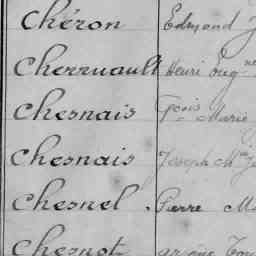 Chéron Edmond J
Cherruault Henri Eug ne
Chesnais Marie
Chesnais Joseph M ie J
Chesnel . Pierre Ma
Chesnot